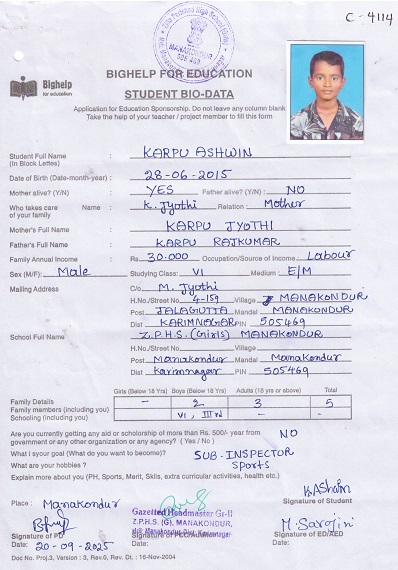 C-4114
MANAKONDUR
505 469
Bighelp
for education
BIGHELP FOR EDUCATION
STUDENT BIO-DATA
Application for Education Sponsorship. Do not leave any column blank
Take the help of your teacher / project member to fill this form
Student Full Name : KARPU ASHWIN
(In Block Letters)
Date of Birth (Date-month-year) : 28-06-2015
Mother alive? (Y/N) : YES Father alive? (Y/N) : NO
Who takes care Name : K. Jyothi Relation : Mother
of your family
Mother's Full Name : KARPU JYOTHI
Father's Full Name : KARPU RAJKUMAR
Family Annual Income : Rs. 30.000 Occupation/Source of Income : Labour
Sex (M/F): Male Studying Class: VI Medium : E/M
Mailing Address C/o M. Jyothi
H.No./Street No. 4-159 Village MANAKONDUR
Post JALAGUTTA Mandal MANAKONDUR
Dist KARIMNAGAR PIN 505469
School Full Name : Z.P.H.S. (Girls) MANAKONDUR
H.No./Street No. Village
Post Manakondur Mandal Manakondur
Dist Karimnagar PIN 505469
Girls (Below 18 Yrs) Boys (Below 18 Yrs) Adults (18 yrs or above) Total
Family Details
Family members (including you) - 2 3 5
Schooling (including you) VI, - -
Are you currently getting any aid or scholarship of more than Rs. 500/- year from NO
government or any other organization or any agency? ( Yes / No )
What i syour goal (What do you want to become)? SUB-INSPECTOR
What are your hobbies ? Sports
Explain more about you (PH, Sports, Merit, Skils, extra curricular activities, health etc.)
K.Ashwin
Signature of Student
Place : Manakondur
Gazetted Headmaster Gr-II
Z.P.H.S. (G), MANAKONDUR,
M. Sarojini
Signature of PD Signature of ED/AED
Date: 20-09-2025 Date: Date:
Doc No. Proj.3, Version : 3, Rev.0, Rev. Dt. : 16-Nov-2004